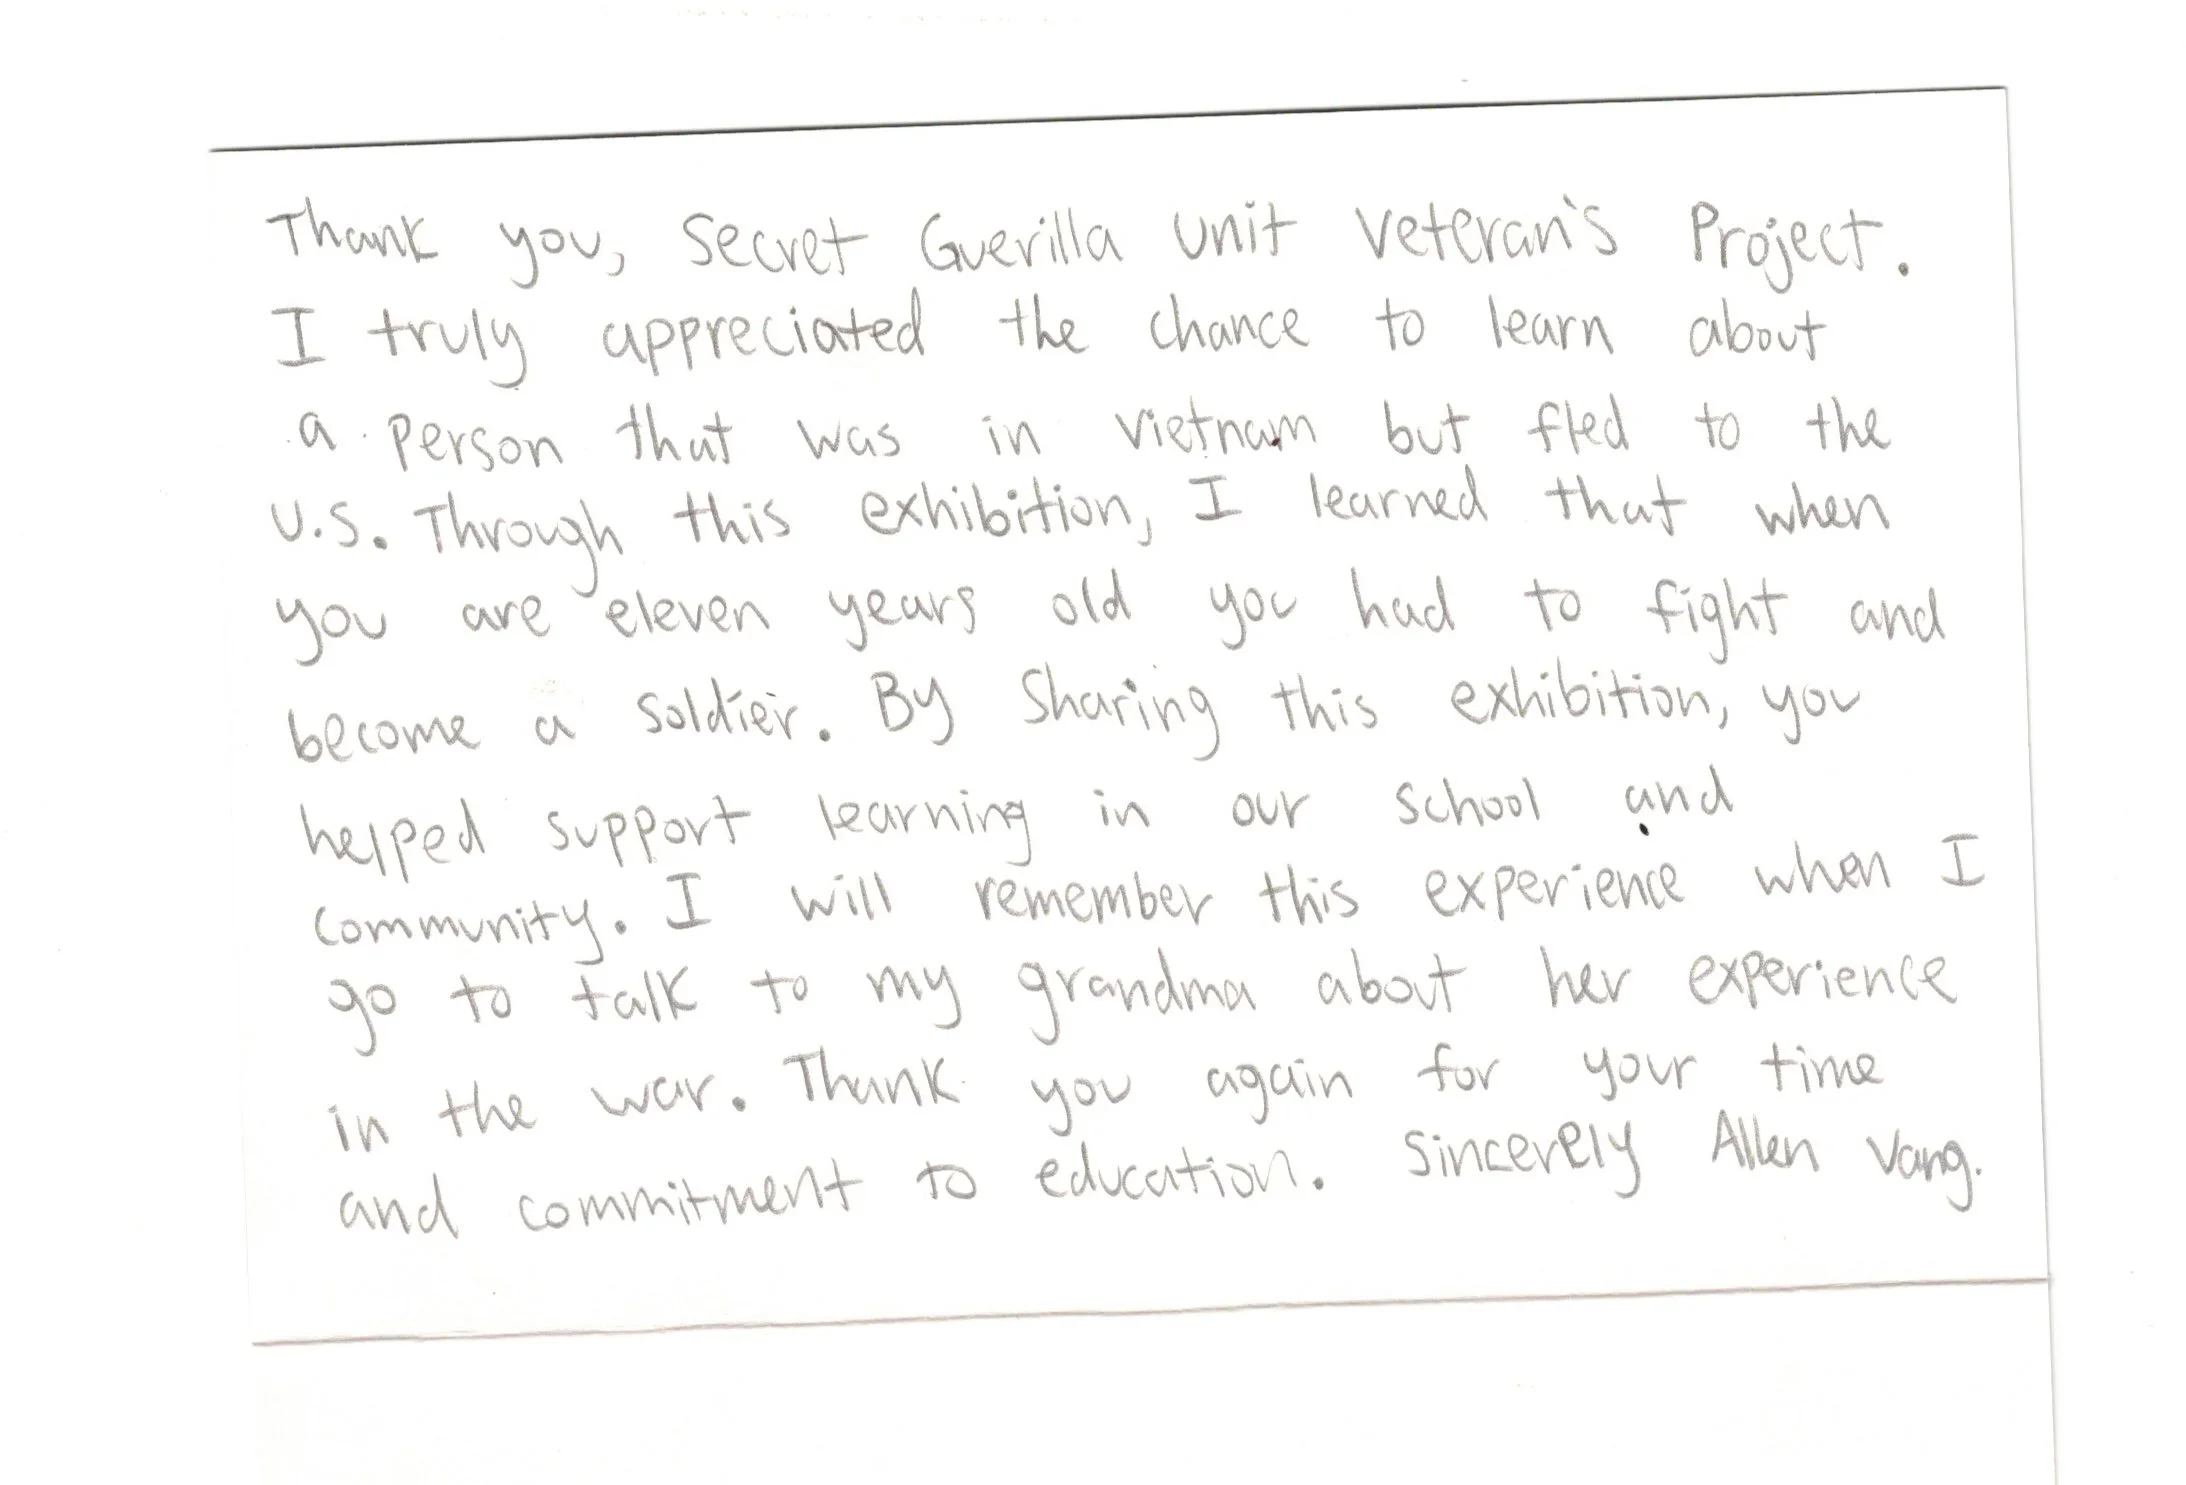 Thank you, Secret Guerilla Unit Veteran's Project.
I truly appreciated the chance to learn about
a person that was in Vietnam but fled to the
U.S. Through this exhibition, I learned that when
you are eleven years old you had to fight and
become a soldier. By Sharing this exhibition, you
helped support learning in our school and
community. I will remember this experience when I
go to talk to my grandma about her experience
in the war. Thank you again for your time
and commitment to education. Sincerely Allen Vang.